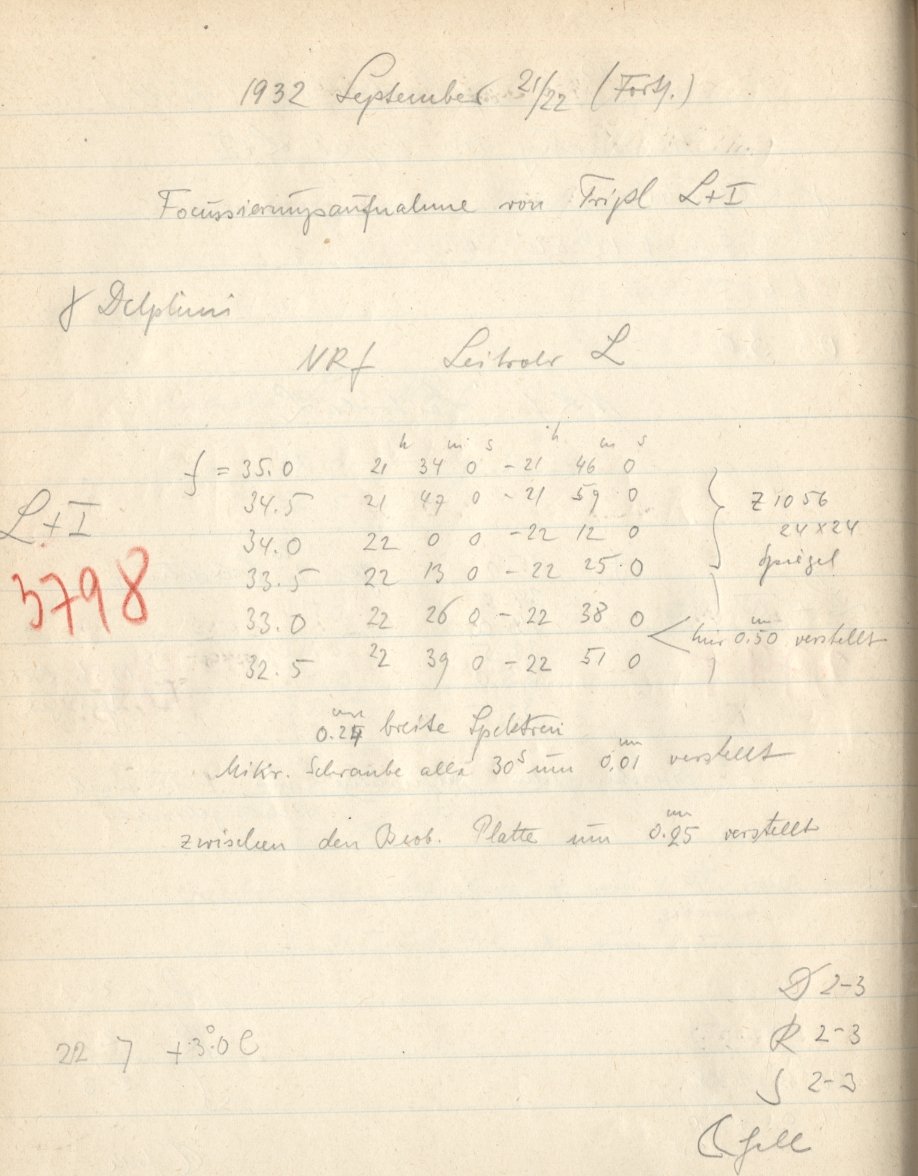 1932 September 21/22 (Forts.)
Focussierungsaufnahme von Tripl L+I
γ Delphini
NRf Leitrohr L
h m s h m s
f = 35.0 21 34 0 - 21 46 0
34.5 21 47 0 - 21 59 0 Z 1056
L+I 34.0 22 0 0 - 22 12 0 24x24
33.5 22 13 0 - 22 25 0 Spiegel
3798 33.0 22 26 0 - 22 38 0
hier 0.50 mm verstellt
32.5 22 39 0 - 22 51 0
0.24 mm breite Spektren
Mikr. Schraube alle 30s um 0.01 mm verstellt
zwischen den Beob. Platte um 0.25 mm verstellt
D 2-3
22 7 +3.°0 C R 2-3
S 2-3
☾ hell